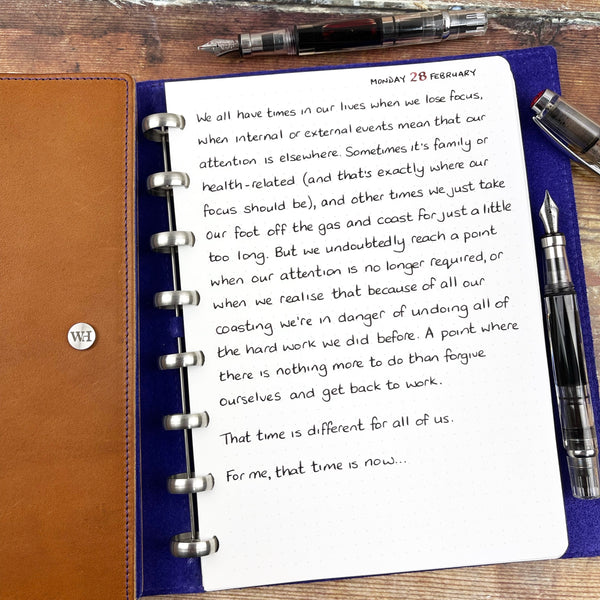 MONDAY 28 FEBRUARY
We all have times in our lives when we lose focus,
when internal or external events mean that our
attention is elsewhere. Sometimes it's family or
health-related (and that's exactly where our
focus should be), and other times we just take
our foot off the gas and coast for just a little
too long. But we undoubtedly reach a point
when our attention is no longer required, or
when we realise that because of all our
coasting we're in danger of undoing all of
the hard work we did before. A point where
there is nothing more to do than forgive
ourselves and get back to work.
That time is different for all of us.
For me, that time is now...
WH